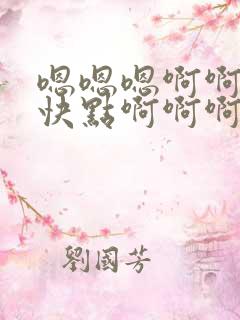 嗯嗯嗯啊啊
快點啊啊啊
劉國芳